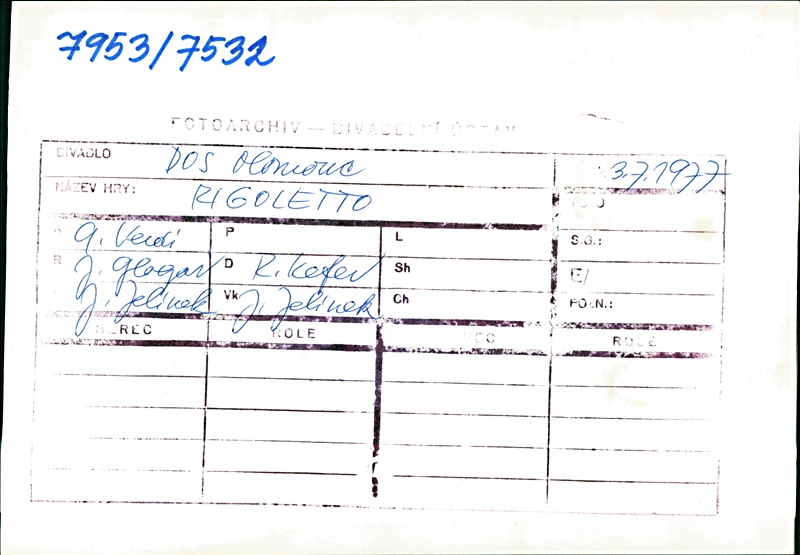 7953/7532
FOTOARCHIV — DIVADELNÍ ÚSTAV
DIVADLO DOS Olomouc 3.7.1977
NÁZEV HRY: RIGOLETTO
A G. Verdi P L S.G.:
R J. Glogar D K. Kefer Sh E/
J. Jelínek Vk J. Jelínek Ch POZN.:
HEREC ROLE HEREC ROLE